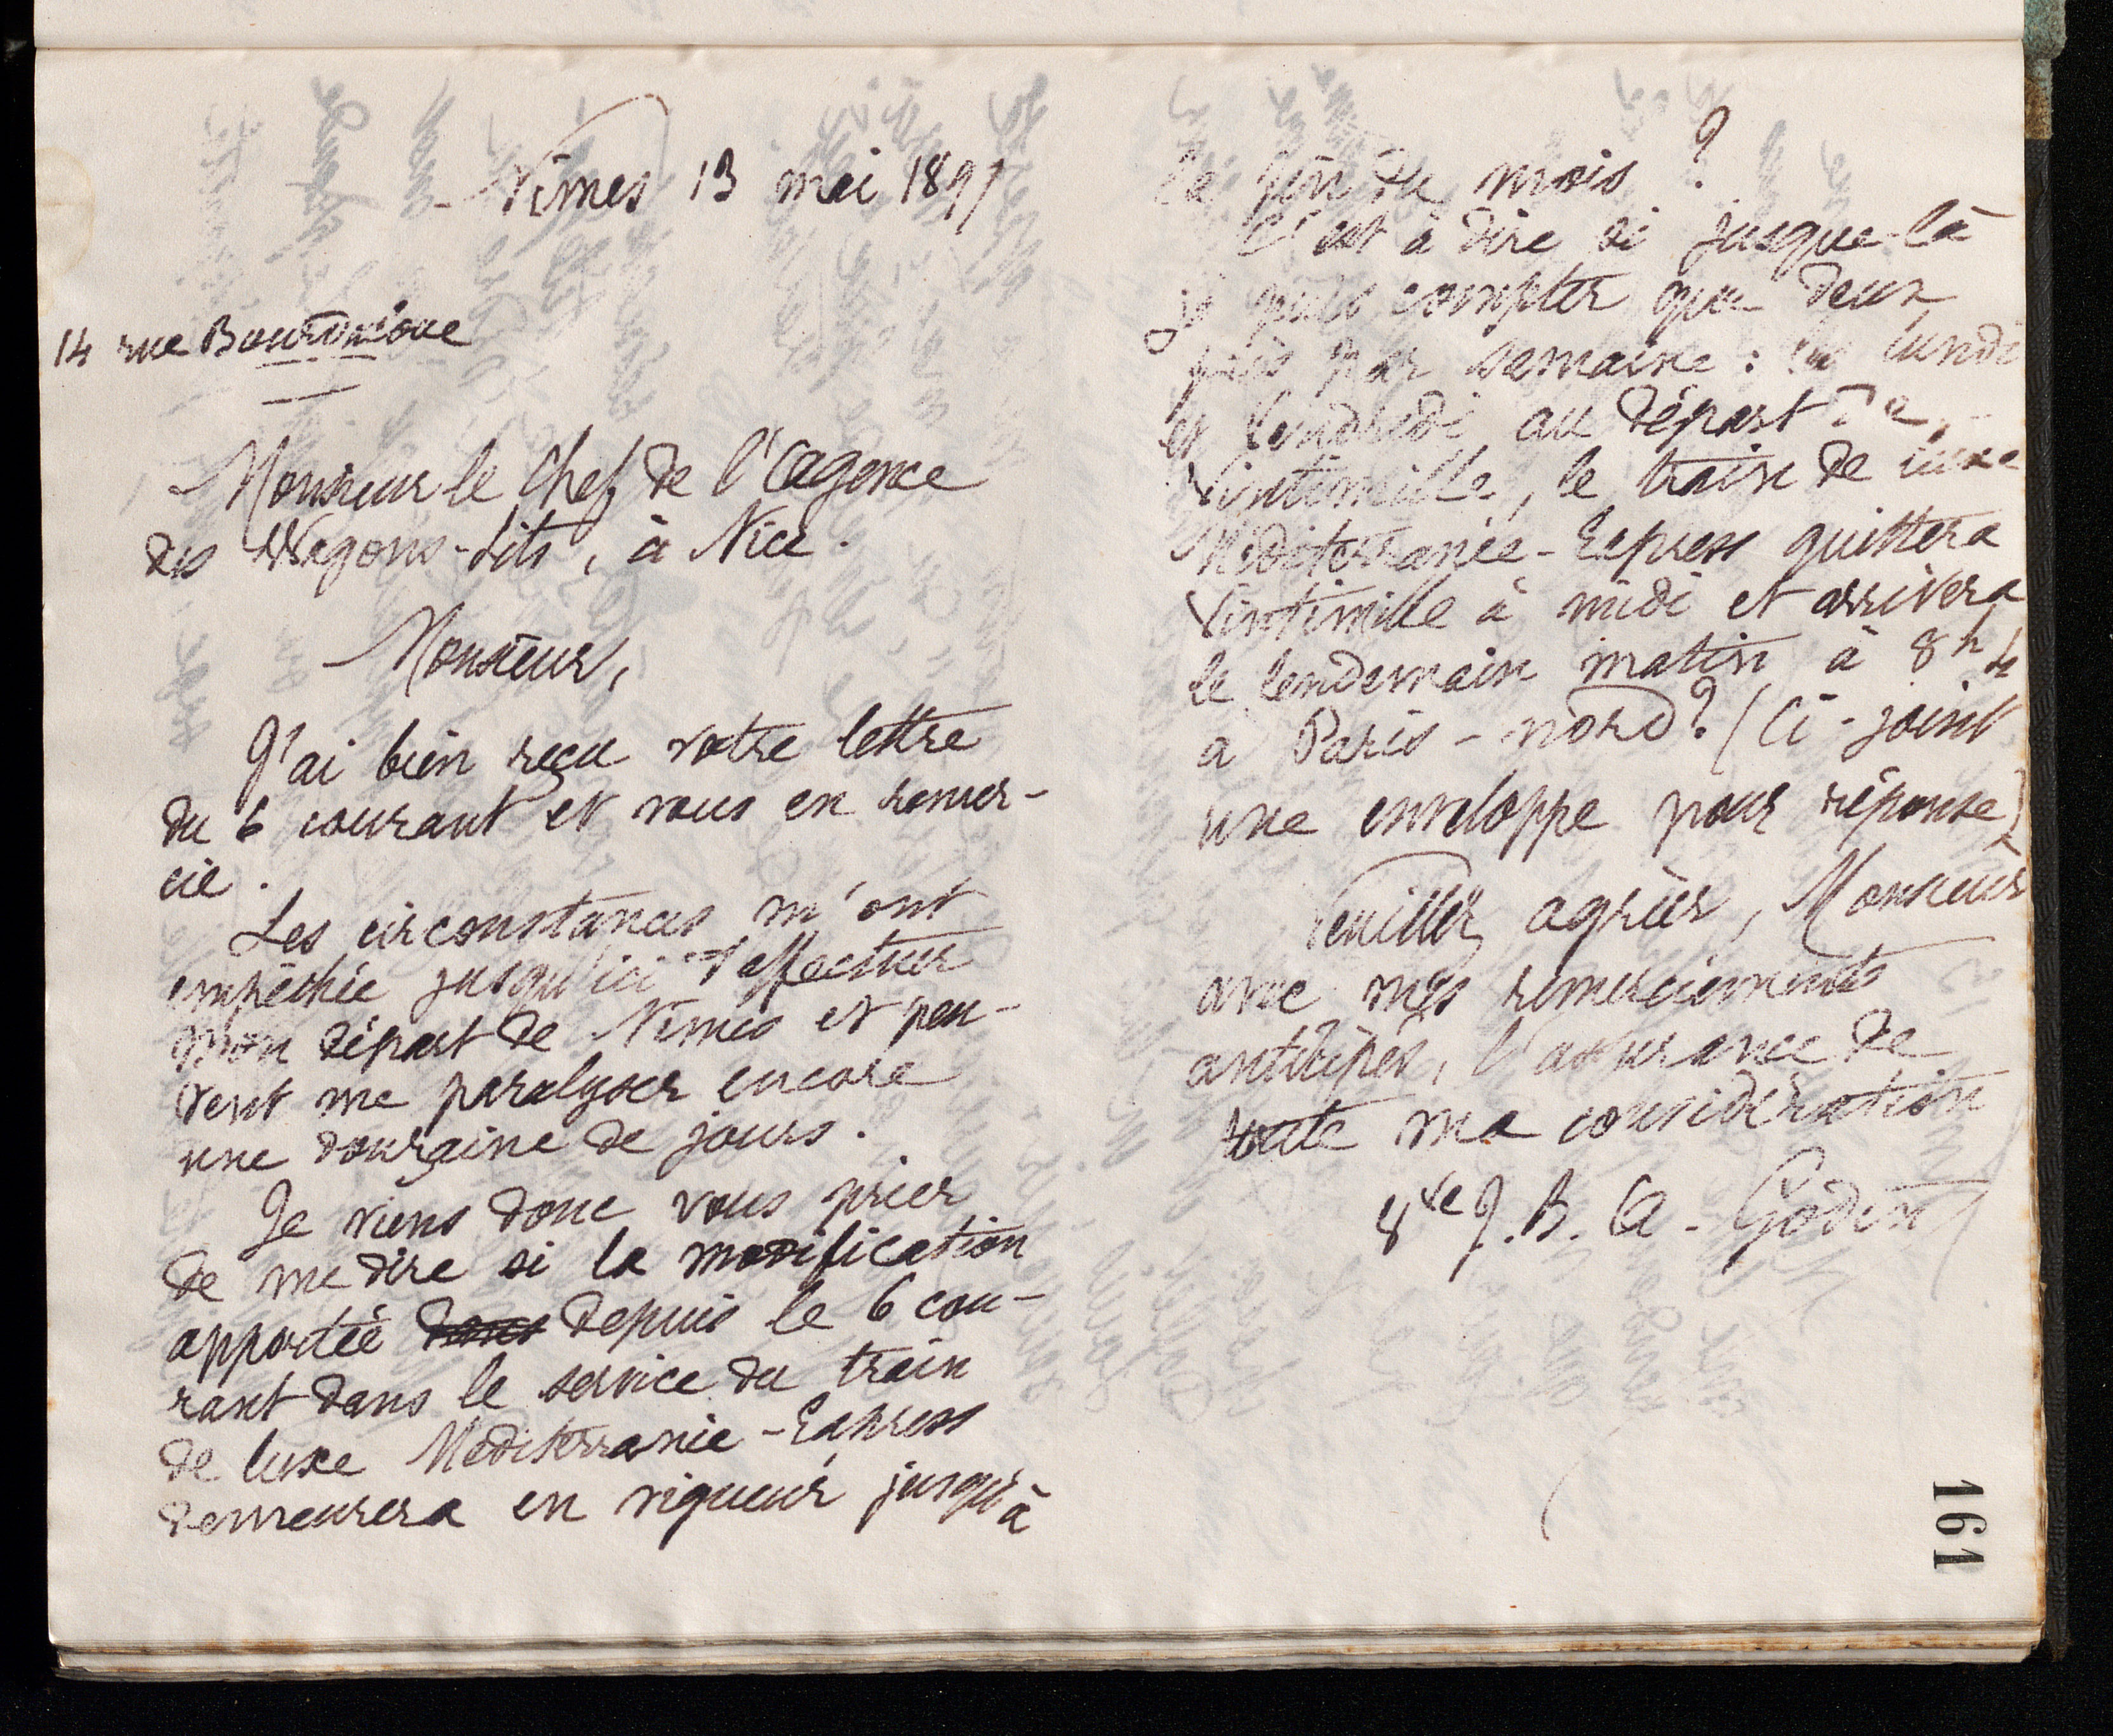 Nîmes 13 mai 1897
14 rue Bourdaloue
Monsieur le Chef de l'Agence
des Wagons-Lits, à Nice.
Monsieur,
J'ai bien reçu votre lettre
du 6 courant et vous en remer-
cie.
Les circonstances m'ont
empêchée jusqu'ici d'effectuer
mon départ de Nîmes et peu-
vent me paralyser encore
une douzaine de jours.
Je viens donc vous prier
de me dire si la modification
apportée dans depuis le 6 cou-
rant dans le service du train
de luxe Méditerranée-Express
demeurera en vigueur jusqu'à
la fin du mois ?
C'est à dire si jusque-là
je puis compter que deux
fois par semaine : les lundi
et Vendredi au départ de
Vintimille, le train de luxe
Méditerranée-Express quittera
Vintimille à midi et arrivera
le lendemain matin à 8h 4
à Paris-nord ? (Ci-joint
une enveloppe pour réponse)
Veuillez agréer, Monsieur
avec mes remerciements
anticipés, l'assurance de
toute ma considération
Vve J. B. A. Godin
161